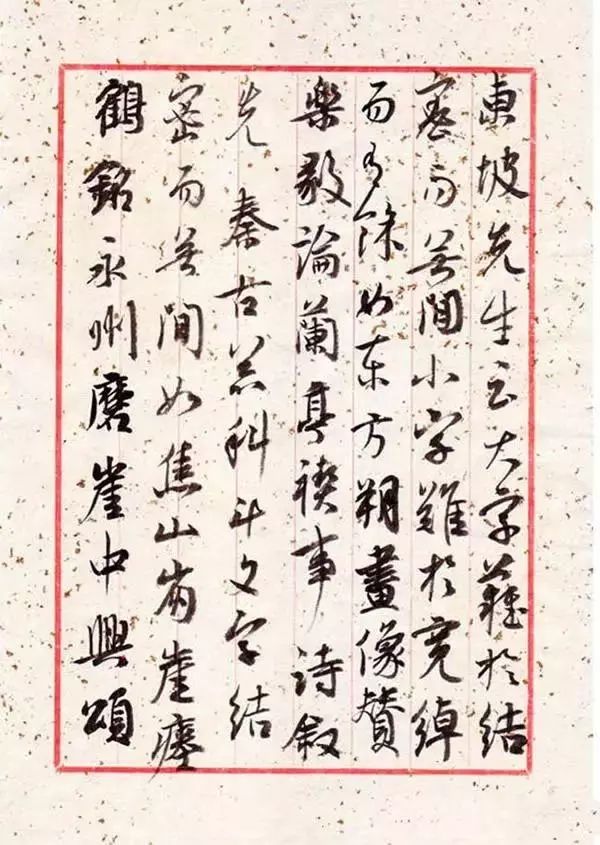 東坡先生云大字難於結
密而無間小字難於寬綽
而有餘如東方朔畫像賛
樂毅論蘭亭禊事詩叙
先秦古器科斗文字結
密而無間如焦山崩崖瘞
鶴銘永州磨崖中興頌